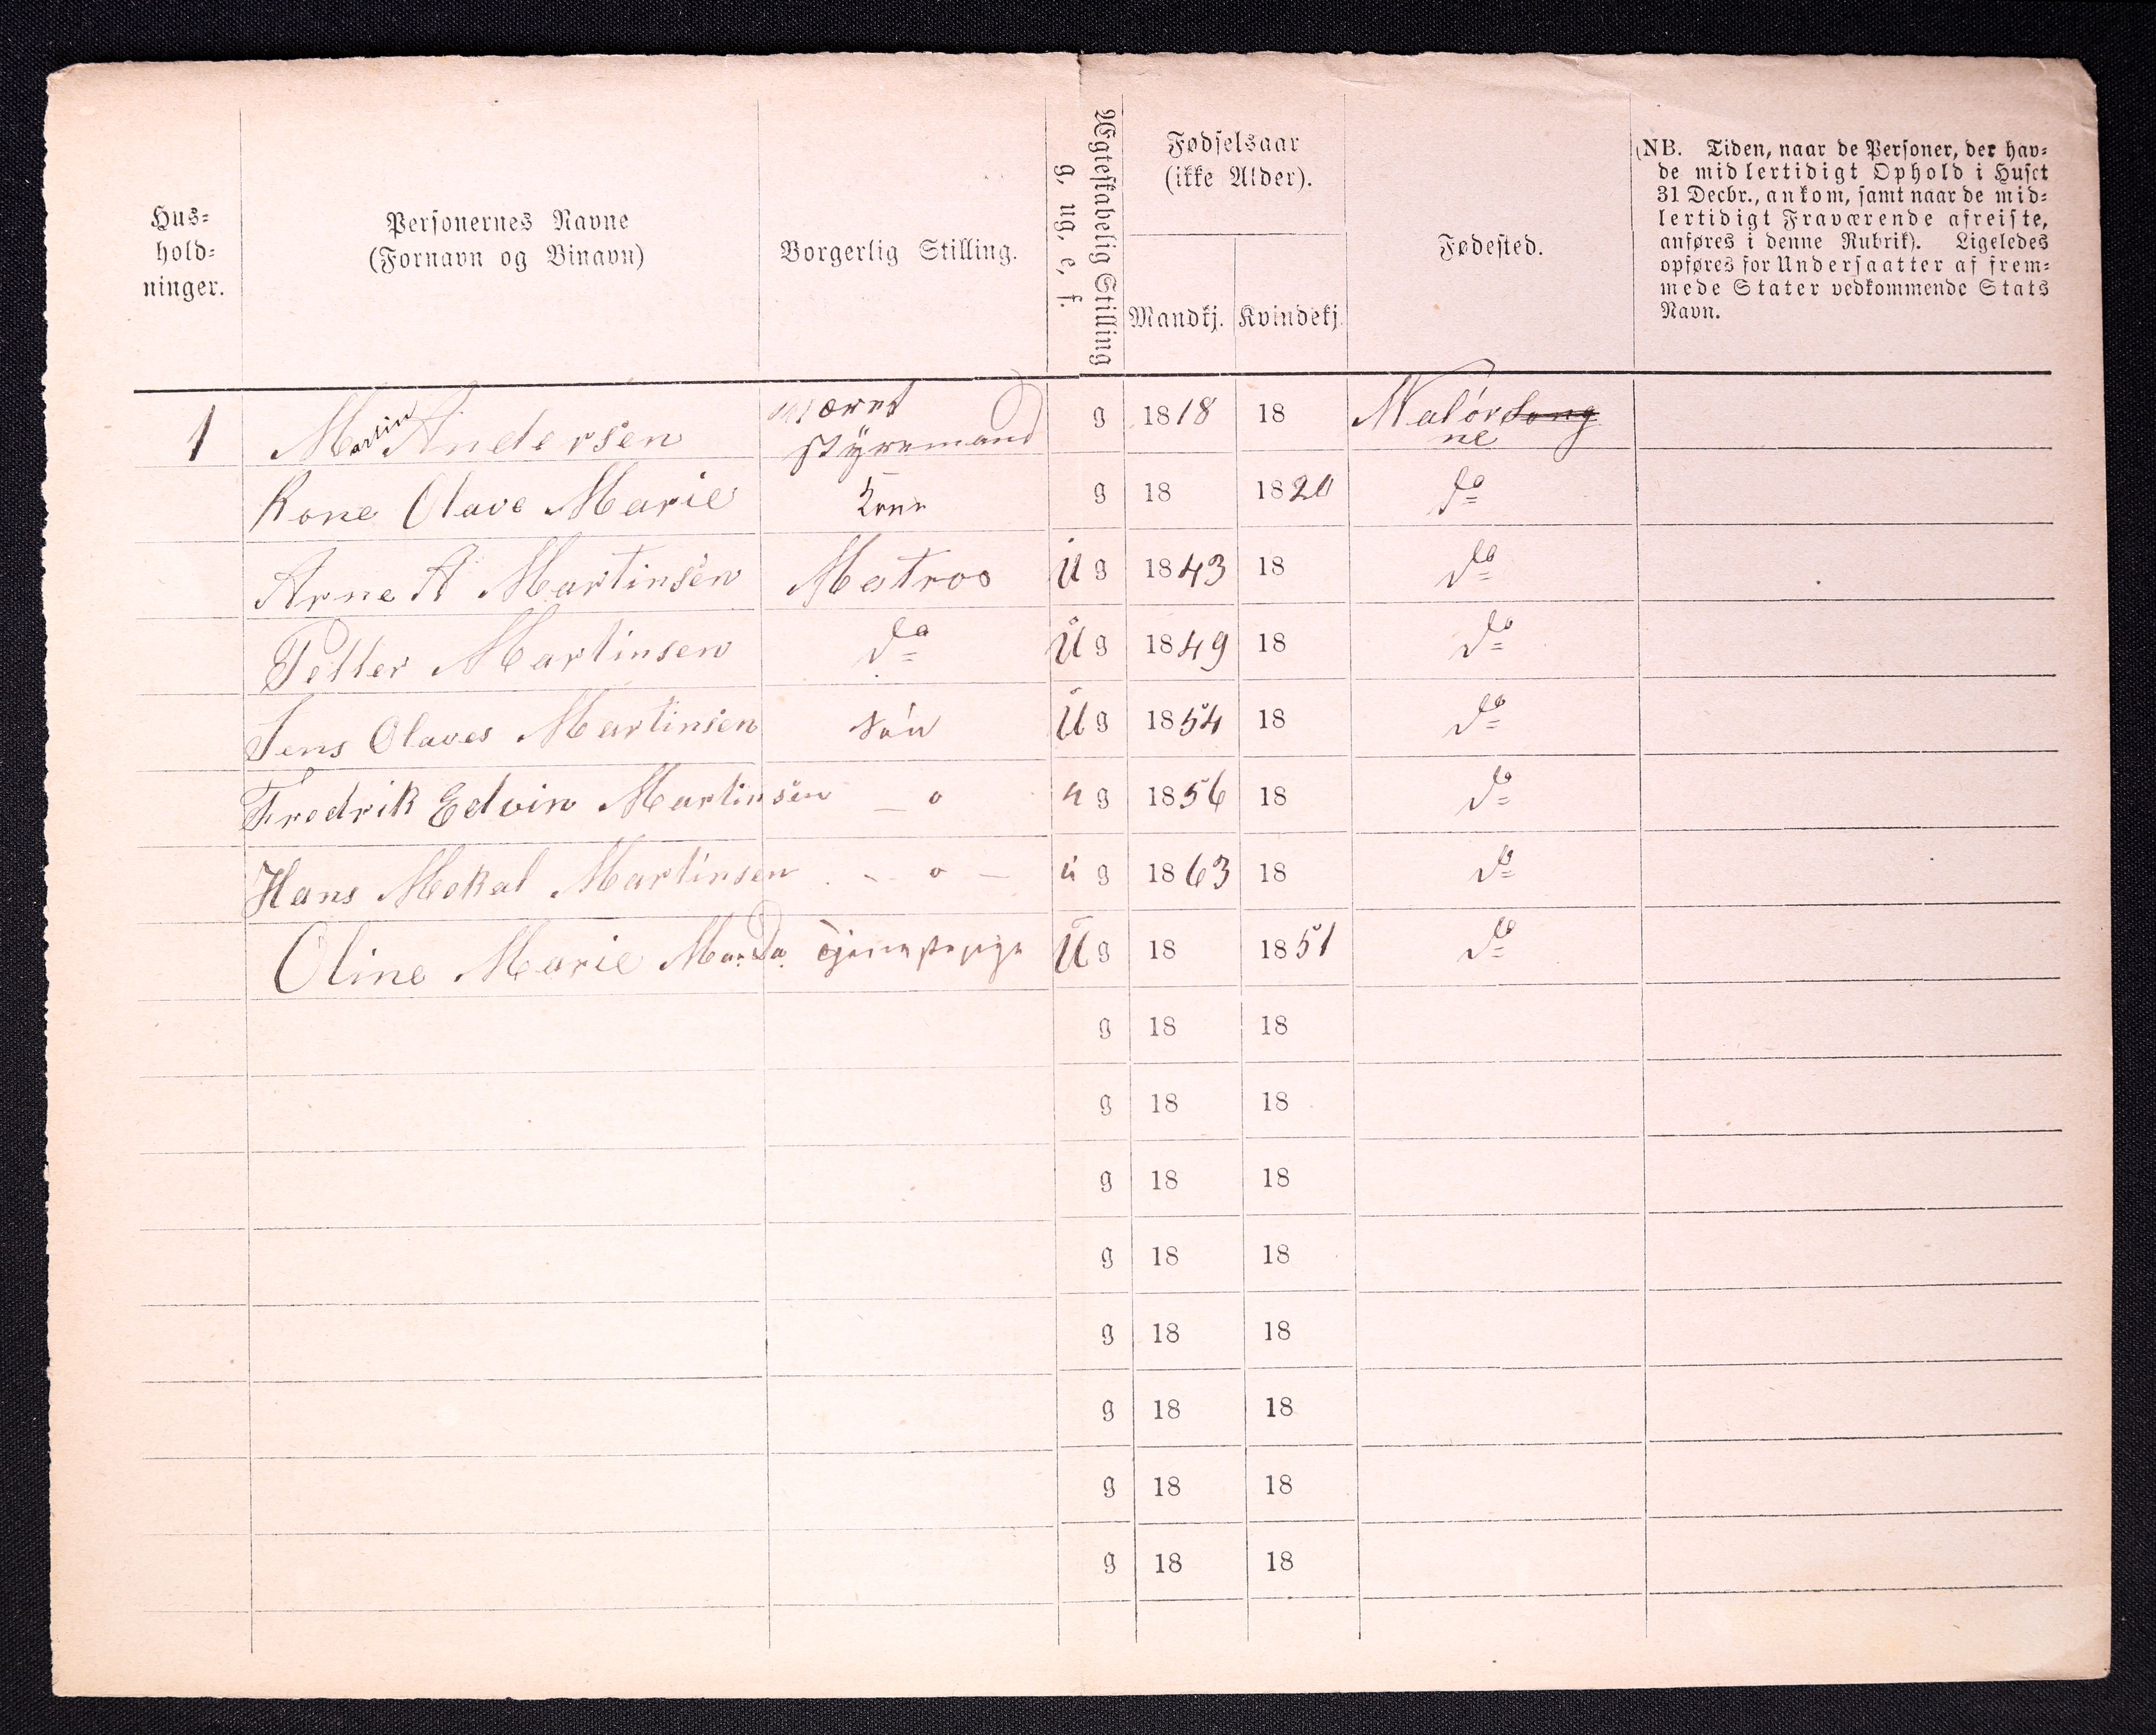 Hus-
hold-
ninger.
Personernes Navne
(Fornavn og Binavn)
Borgerlig Stilling.
Ægteskabelig Stilling
g, ug, e, f.
Fødselsaar
(ikke Alder).
Mandkj. Kvindekj.
Fødested.
(NB. Tiden, naar de Personer, der hav-
de midlertidigt Ophold i Huset
31 Decbr., ankom, samt naar de mid-
lertidigt Fraværende afreiste,
anføres i denne Rubrik). Ligeledes
opføres for Undersaatter af frem-
mede Stater vedkommende Stats
Navn.
1 Martin Andersen været styremand g 1818 18 Nalörsong
ne
Kone Olave Marie Kone g 18 1820 do
Arne A Martinsen Matros ug 1843 18 do
Petter Martinsen do ug 1849 18 do
Jens Olaves Martinsen Sön ug 1854 18 do
Fredrik Edvin Martinsen — o ug 1856 18 do
Hans Mekal Martinsen - o — ug 1863 18 do
Oline Marie Tjenestepige ug 18 1851 do
g 18 18
g 18 18
g 18 18
g 18 18
g 18 18
g 18 18
g 18 18
g 18 18